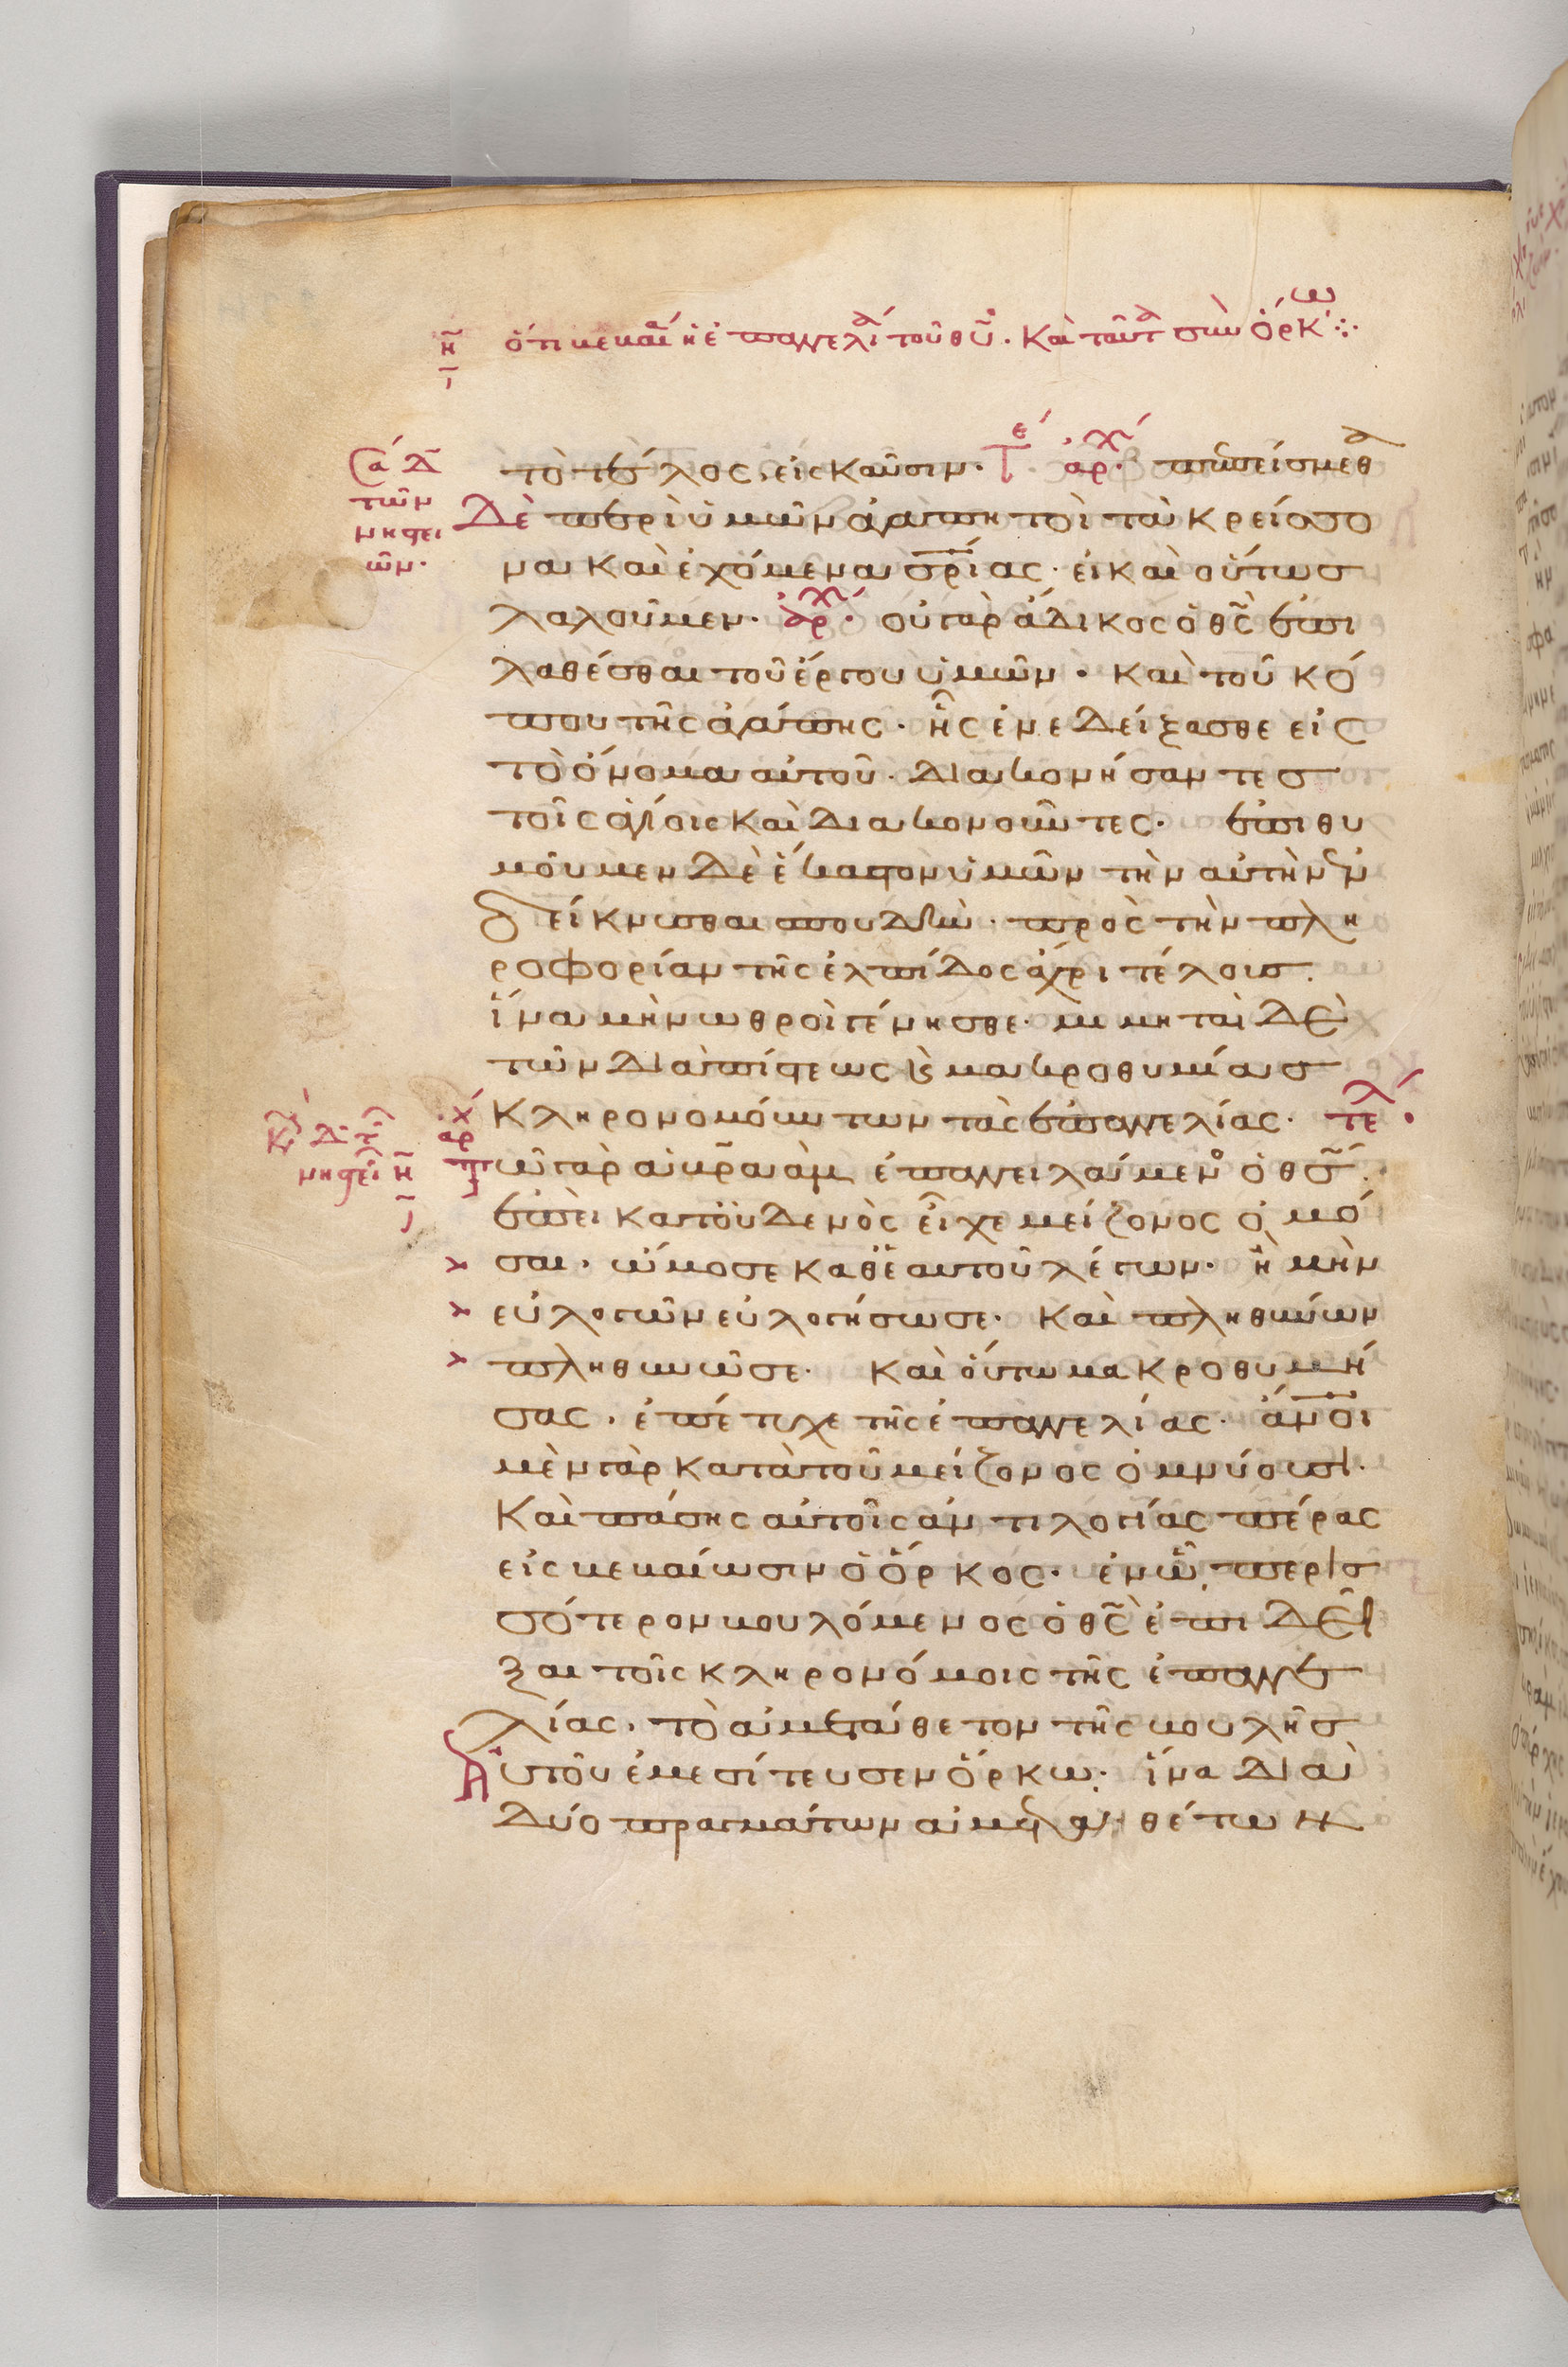 η ὅτι βεβαία ἡ ἐπαγγελία τοῦ θῦ. Καὶ ταῦτα σὺν ὅρκω
Σα Δ
τῶν
νηστει
ῶν.
τὸ τέλος, εἰς καῦσιν. τε αρχ πεπείσμεθα
Δὲ περὶ ὑμῶν ἀγαπητοὶ τὰ κρείσσο
να καὶ ἐχόμενα σρίας. εἰ καὶ οὕτως
λαλοῦμεν. αρχ. οὐ γὰρ ἄδικος ὁ θς ἐπι
λαθέσθαι τοῦ ἔργου ὑμῶν. καὶ τοῦ κό
που τῆς ἀγάπης. ἧς ἐνεδείξασθε εἰς
τὸ ὄνομα αὐτοῦ. διακονήσαντες
τοῖς ἁγίοις καὶ διακονοῦντες. ἐπιθυ
μοῦμεν δὲ ἕκαστον ὑμῶν τὴν αὐτὴν ἐν
δείκνυσθαι σπουδὴν. πρὸς τὴν πλη
ροφορίαν τῆς ἐλπίδος ἄχρι τέλους.
ἵνα μὴ νωθροὶ γένησθε. μιμηταὶ δὲ
τῶν διὰ πίστεως καὶ μακροθυμίας
κληρονομούντων τὰς ἐπαγγελίας. τελ
αρχ Τῶ γὰρ ἀβραὰμ ἐπαγγειλάμενος ὁ θς.
ἐπεὶ κατ οὐδενὸς εἶχε μείζονος ὀμό
σαι. ὤμοσε καθ ἑαυτοῦ λέγων. ἦ μὴν
εὐλογῶν εὐλογήσω σε. Καὶ πληθύνων
πληθυνῶ σε. Καὶ οὕτω μακροθυμή
σας. ἐπέτυχε τῆς ἐπαγγελίας. ἄνοι
μὲν γὰρ κατὰ τοῦ μείζονος ὀμνύουσι.
Καὶ πάσης αὐτοῖς ἀντιλογίας πέρας
εἰς βεβαίωσιν ὁ ὅρκος. ἐν ὧ περισ
σότερον βουλόμενος ὁ θς ἐπιδεῖ
ξαι τοῖς κληρονόμοις τῆς ἐπαγγε
λίας. τὸ ἀμετάθετον τῆς βουλῆς
Αὐτοῦ ἐμεσίτευσεν ὅρκω. ἵνα διὰ
δύο πραγμάτων ἀμεταθέτων